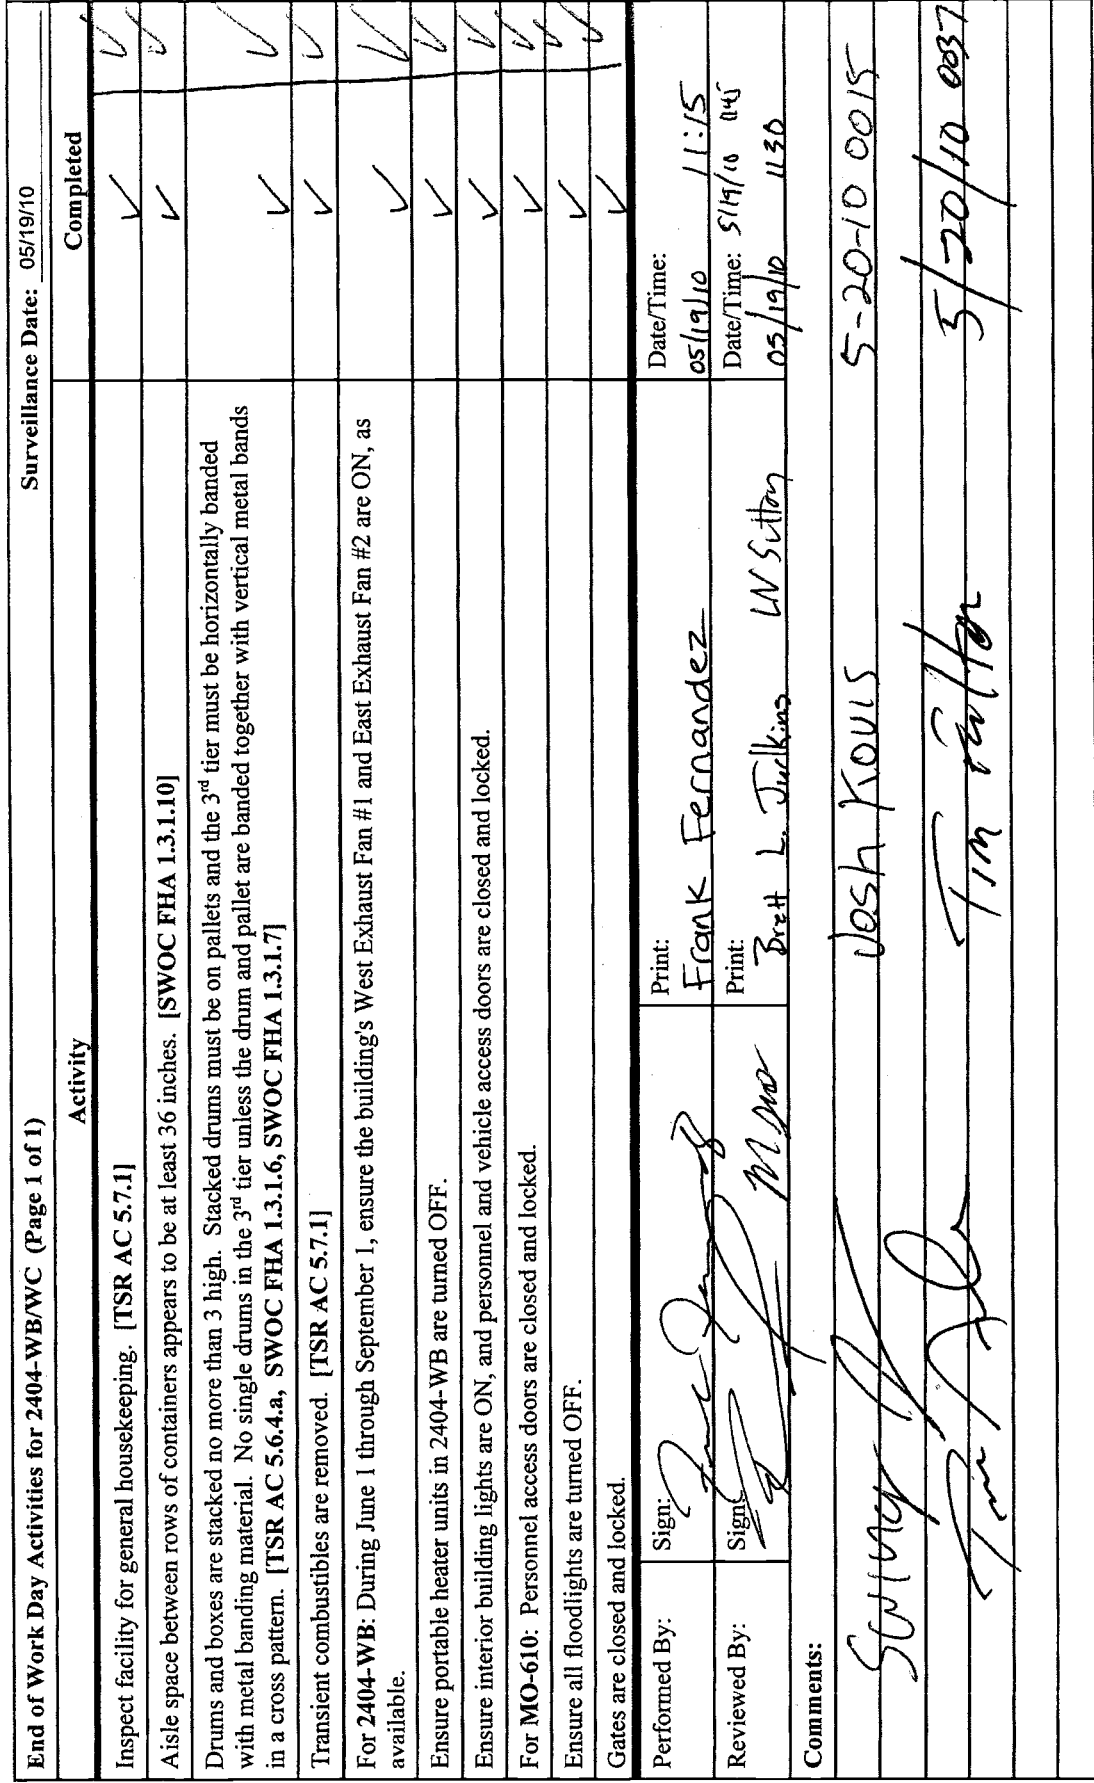 End of Work Day Activities for 2404-WB/WC (Page 1 of 1) Surveillance Date: 05/19/10
Activity Completed
Inspect facility for general housekeeping. [TSR AC 5.7.1] ✓ ✓
Aisle space between rows of containers appears to be at least 36 inches. [SWOC FHA 1.3.1.10] ✓ ✓
Drums and boxes are stacked no more than 3 high. Stacked drums must be on pallets and the 3rd tier must be horizontally banded
with metal banding material. No single drums in the 3rd tier unless the drum and pallet are banded together with vertical metal bands
in a cross pattern. [TSR AC 5.6.4.a, SWOC FHA 1.3.1.6, SWOC FHA 1.3.1.7] ✓ ✓
Transient combustibles are removed. [TSR AC 5.7.1] ✓ ✓
For 2404-WB: During June 1 through September 1, ensure the building's West Exhaust Fan #1 and East Exhaust Fan #2 are ON, as
available. ✓ ✓
Ensure portable heater units in 2404-WB are turned OFF. ✓ ✓
Ensure interior building lights are ON, and personnel and vehicle access doors are closed and locked. ✓ ✓
For MO-610: Personnel access doors are closed and locked. ✓ ✓
Ensure all floodlights are turned OFF. ✓ ✓
Gates are closed and locked. ✓ ✓
Performed By: Sign: Print: Date/Time:
Frank Fernandez 05/19/10 11:15
Reviewed By: Sign: Print: Date/Time: 5/19/10 1145
Brett L. Judkins LN Sutton 05/19/10 1130
Comments:
Swing Josh Kovis 5-20-10 0015
Tim 5/20/10 0037